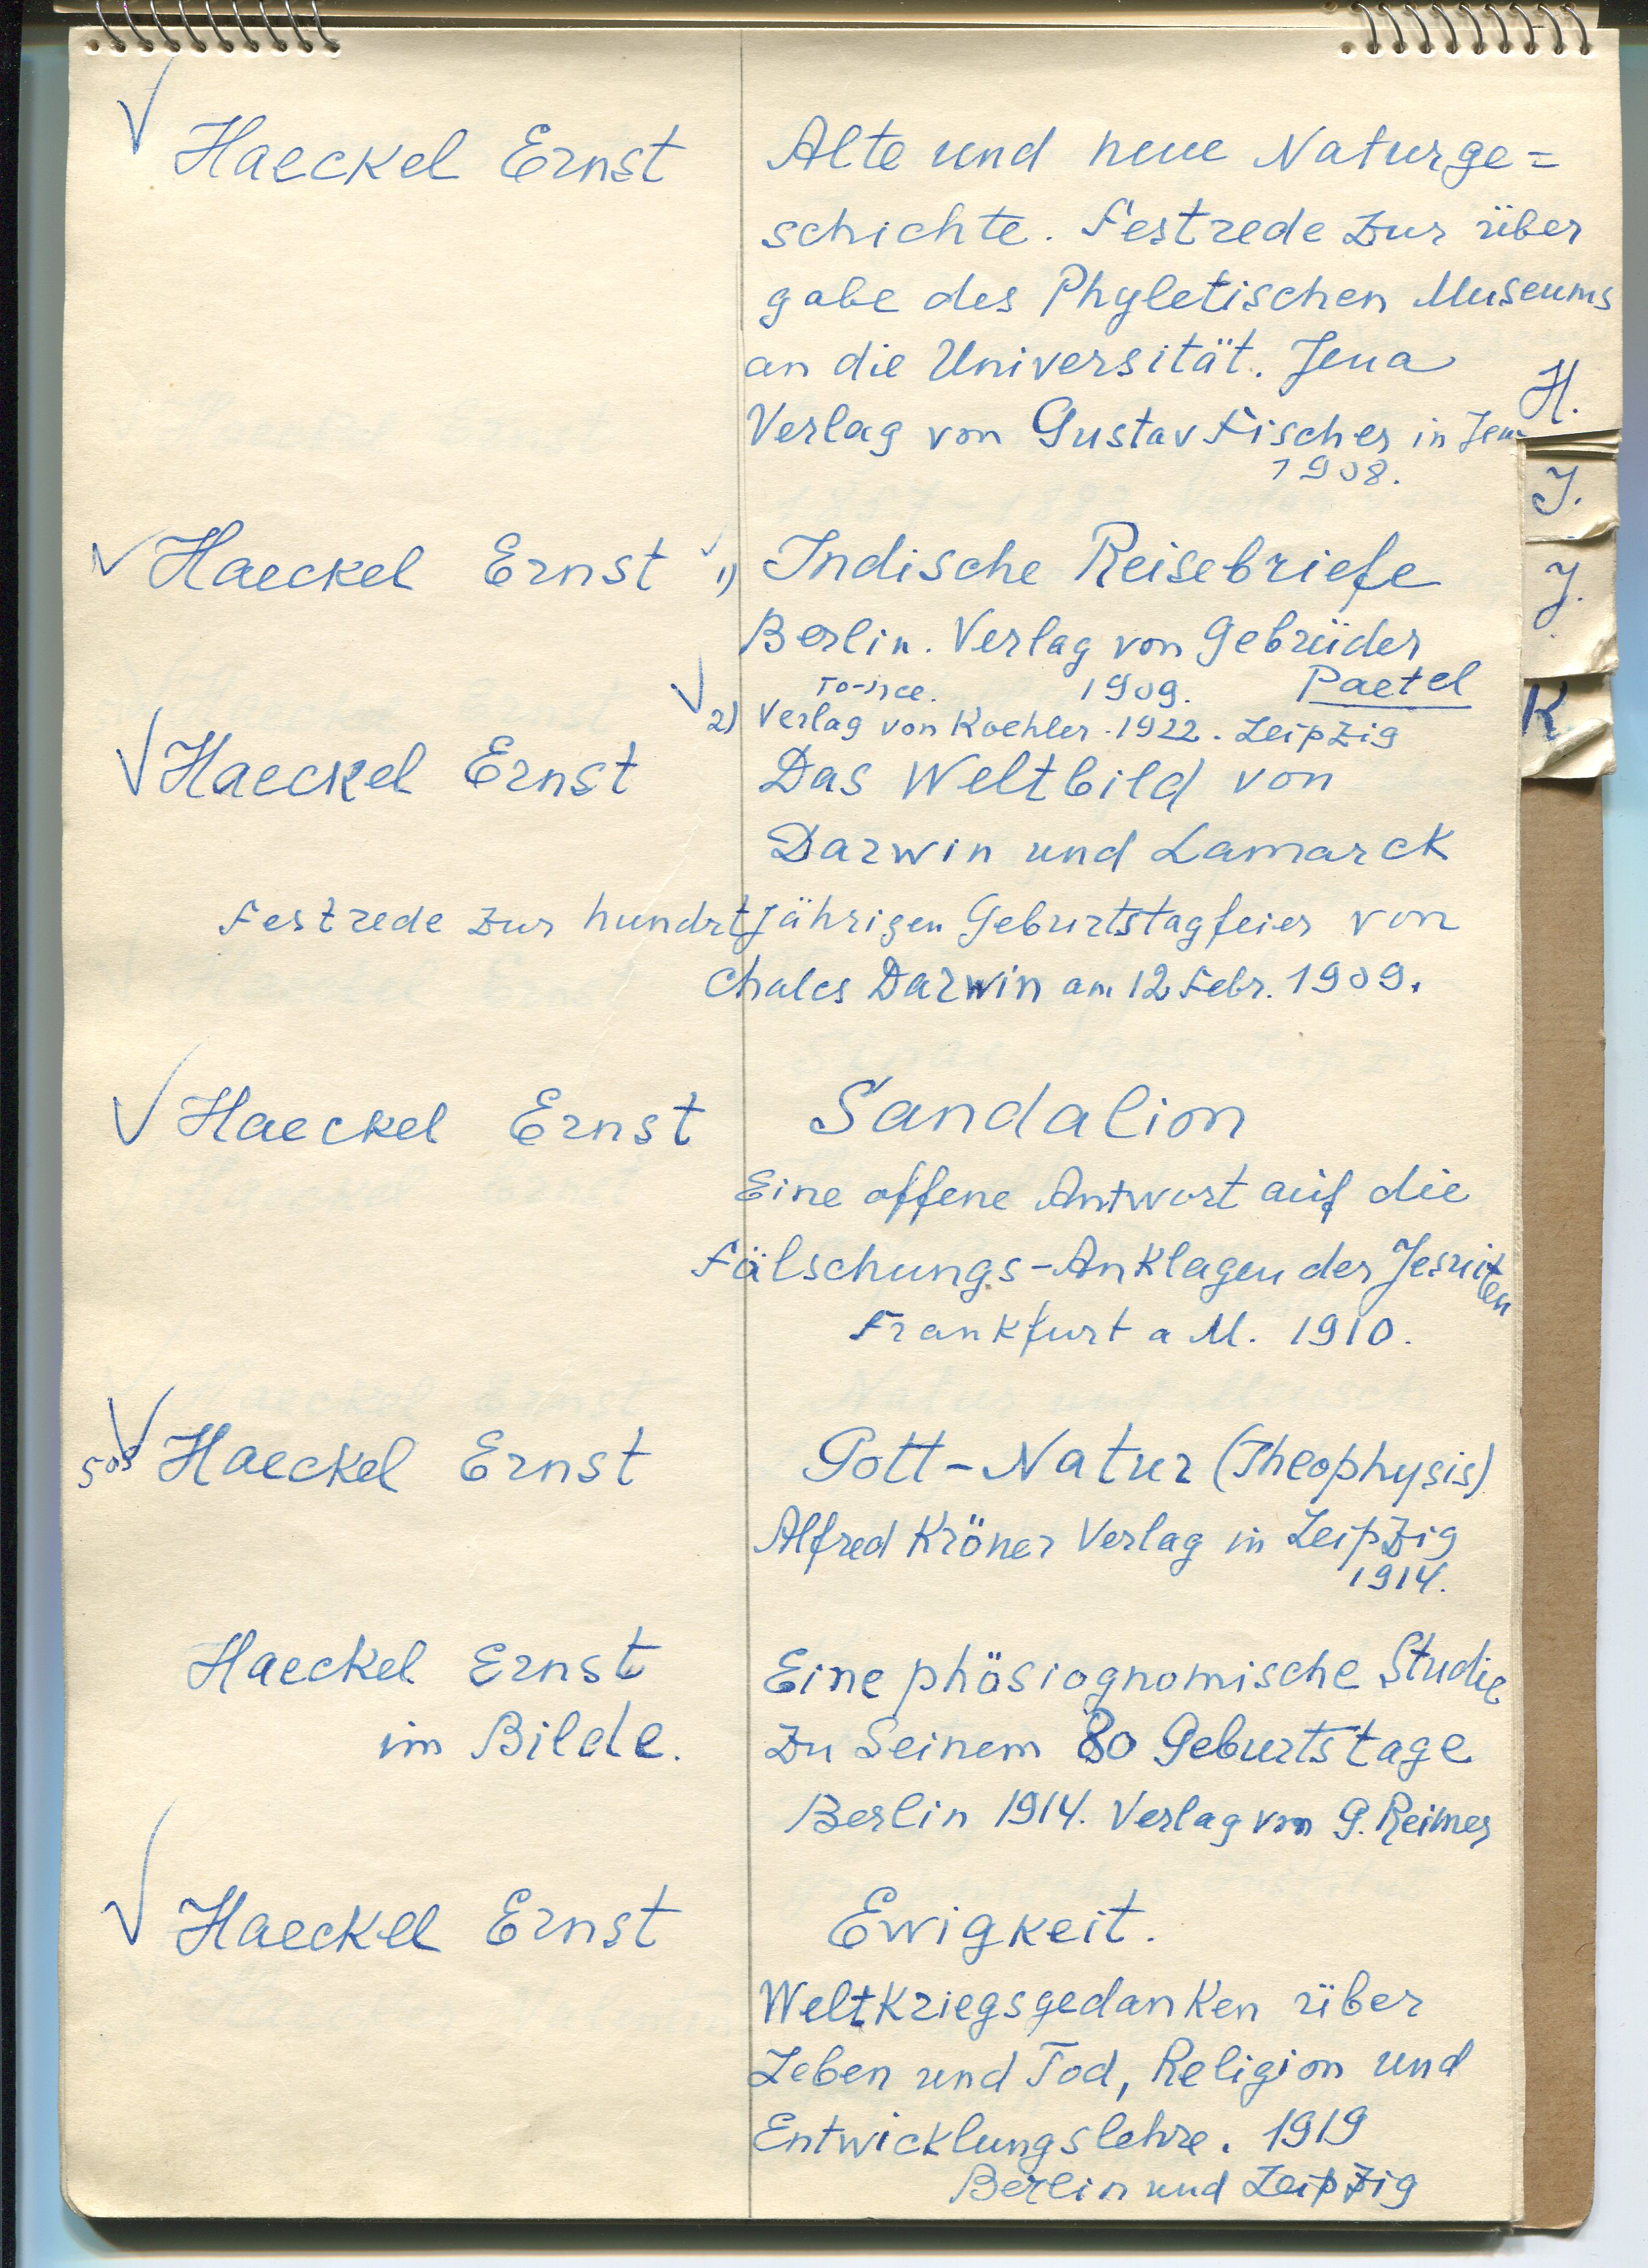 √ Haeckel Ernst Alte und neue Naturge=
schichte. Festrede zur über
gabe des Phyletischen Museums
an die Universität. Jena
Verlag von Gustav Fischer in Jena
1908.
H.
J.
J.
K
√ Haeckel Ernst √ 1) Indische Reisebriefe
Berlin. Verlag von Gebrüder
1909. Paetel
√ 2) Verlag von Koehler. 1922. Leipzig
√ Haeckel Ernst Das Weltbild von
Darwin und Lamarck
Festrede zur hundrtjährigen Geburtstagfeier von
Chales Darwin am 12 Febr. 1909.
√ Haeckel Ernst Sandalion
Eine offene Antwort auf die
Fälschungs-Anklagen der Jesuiten
Frankfurt a M. 1910.
√ Haeckel Ernst Gott-Natur (Theophysis)
Alfred Kröner Verlag in Leipzig
1914.
Haeckel Ernst Eine phösiognomische Studie
im Bilde. zu Seinem 80 Geburtstage
Berlin 1914. Verlag von G. Reimer
√ Haeckel Ernst Ewigkeit.
Weltkriegsgedanken über
Leben und Tod, Religion und
Entwicklungslehre. 1919
Berlin und Leipzig